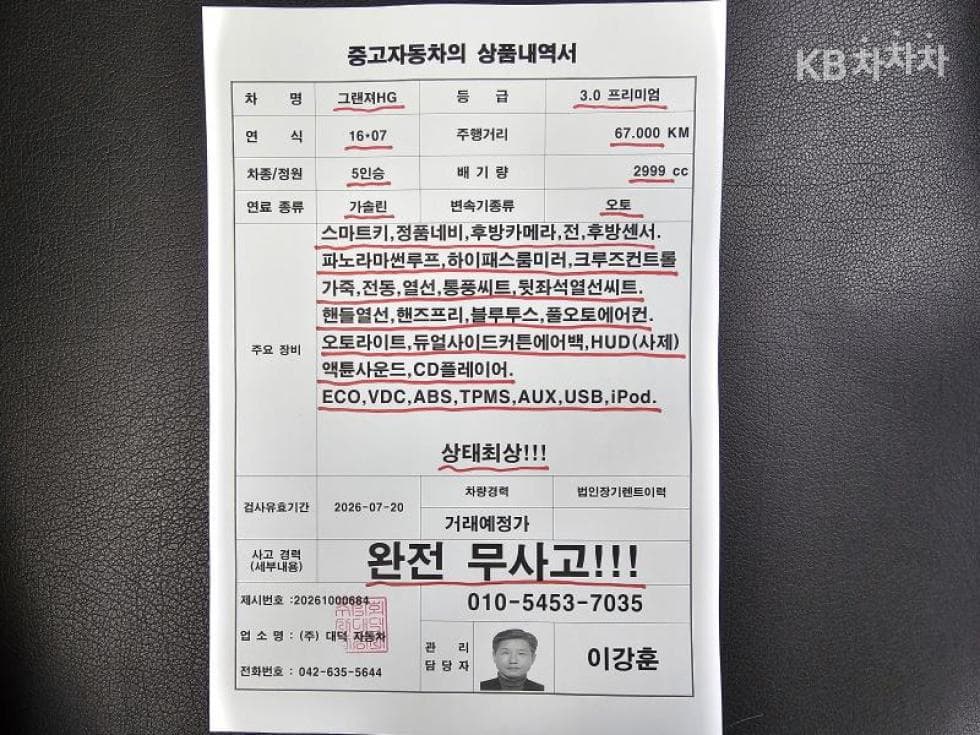 KB차차차
중고자동차의 상품내역서
차 명 그랜져HG 등 급 3.0 프리미엄
연 식 16•07 주행거리 67.000 KM
차종/정원 5인승 배 기 량 2999 cc
연료 종류 가솔린 변속기종류 오토
주요 장비
스마트키,정품네비,후방카메라,전,후방센서.
파노라마썬루프,하이패스룸미러,크루즈컨트롤
가죽,전동,열선,통풍씨트,뒷좌석열선씨트.
핸들열선,핸즈프리,블루투스,풀오토에어컨.
오토라이트,듀얼사이드커튼에어백,HUD(사제)
액튠사운드,CD플레이어.
ECO,VDC,ABS,TPMS,AUX,USB,iPod.
상태최상!!!
검사유효기간 2026-07-20 차량경력 법인장기렌트이력
거래예정가
사고 경력
(세부내용)
완전 무사고!!!
제시번호 :20261000684
010-5453-7035
업 소 명 : (주) 대덕 자동차
전화번호 : 042-635-5644
관 리
담 당 자
이강훈